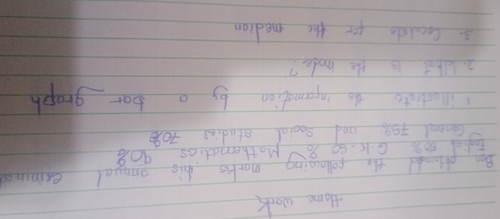 Home work
Ben obtained the following marks his annual examinat
English 50% G.K. 60% Mathematics 90%
General 75% and Social studies 70%
1. illustrate the information by a bar graph
2. What is the mode?
3. Calculate for the median